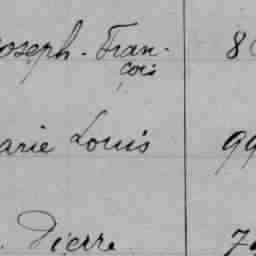 oseph. Fran- 8
çois
arie Louis 99
. Pierre 7